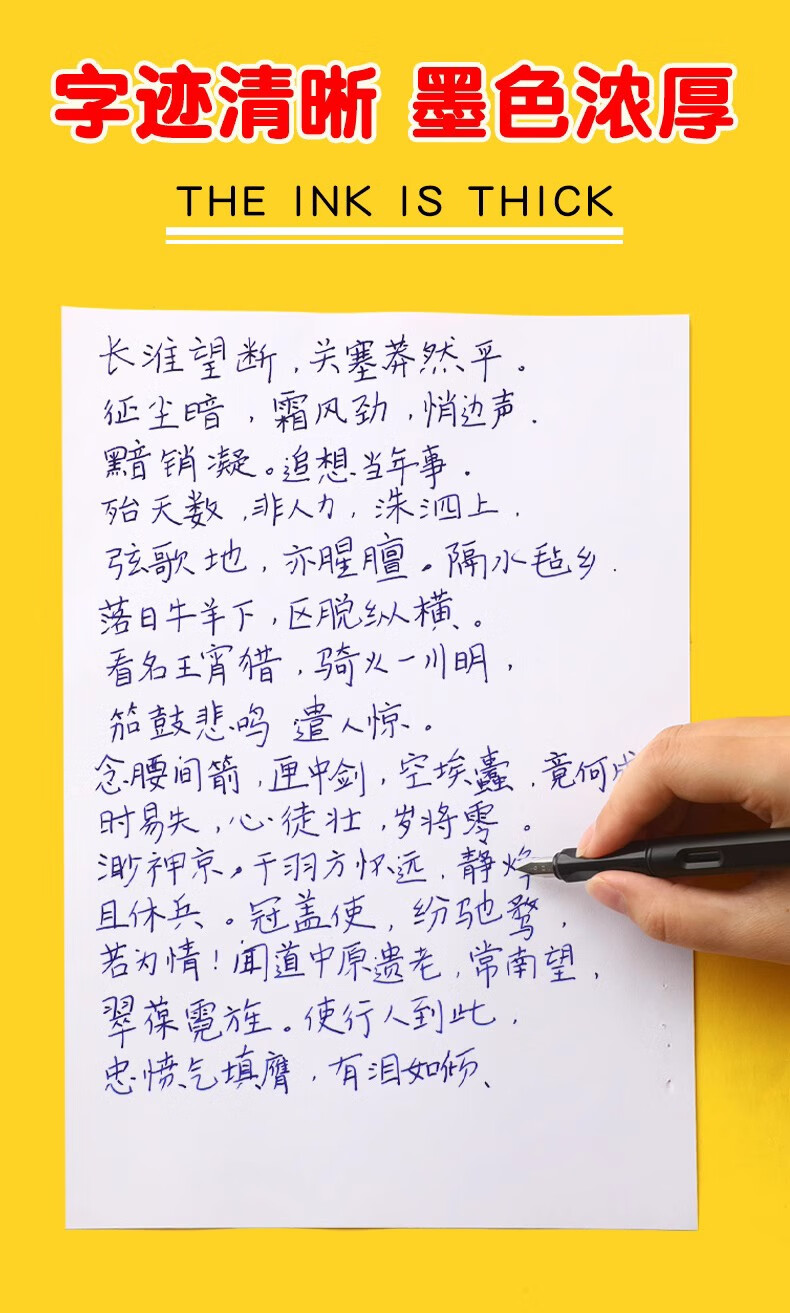 字迹清晰 墨色浓厚
THE INK IS THICK
长淮望断，关塞莽然平。
征尘暗，霜风劲，悄边声.
黯销凝。追想当年事.
殆天数,非人力，洙泗上，
弦歌地，亦腥膻。隔水毡乡.
落日牛羊下，区脱纵横、。
看名王宵猎，骑火一川明，
笳鼓悲鸣 遣人惊。
念腰间箭，匣中剑，空埃蠹，竟何
时易失，心徒壮，岁将零。
渺神京。干羽方怀远，静烽
且休兵。冠盖使，纷驰骛，
若为情！闻道中原遗老，常南望，
翠葆霓旌。使行人到此，
忠愤气填膺，有泪如倾、